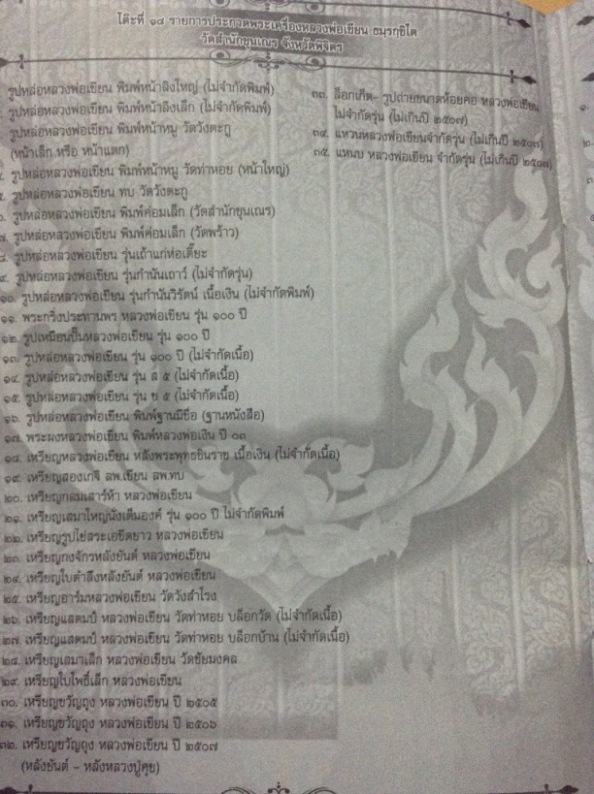 โต๊ะที่ ๑๘ รายการประกวดพระเครื่องหลวงพ่อเขียน ธมฺรกฺขิโต
วัดสำนักขุนเณร จังหวัดพิจิตร
รูปหล่อหลวงพ่อเขียน พิมพ์หน้าลิงใหญ่ (ไม่จำกัดพิมพ์)
รูปหล่อหลวงพ่อเขียน พิมพ์หน้าลิงเล็ก (ไม่จำกัดพิมพ์)
รูปหล่อหลวงพ่อเขียน พิมพ์หน้าหมู วัดวังตะกู
(หน้าเล็ก หรือ หน้าแตก)
รูปหล่อหลวงพ่อเขียน พิมพ์หน้าหมู วัดท่าหอย (หน้าใหญ่)
รูปหล่อหลวงพ่อเขียน ทบ วัดวังตะกู
๖. รูปหล่อหลวงพ่อเขียน พิมพ์ค่อมเล็ก (วัดสำนักขุนเณร)
๗. รูปหล่อหลวงพ่อเขียน พิมพ์ค่อมเล็ก (วัดพร้าว)
๘. รูปหล่อหลวงพ่อเขียน รุ่นเถ้าแก่ห่อเตี๊ยะ
๙. รูปหล่อหลวงพ่อเขียน รุ่นกำนันเถาว์ (ไม่จำกัดรุ่น)
๑๐. รูปหล่อหลวงพ่อเขียน รุ่นกำนันวิรัตน์ เนื้อเงิน (ไม่จำกัดพิมพ์)
๑๑. พระกริ่งประทานพร หลวงพ่อเขียน รุ่น ๑๐๐ ปี
๑๒. รูปเหมือนปั๊มหลวงพ่อเขียน รุ่น ๑๐๐ ปี
๑๓. รูปหล่อหลวงพ่อเขียน รุ่น ๑๐๐ ปี (ไม่จำกัดเนื้อ)
๑๔. รูปหล่อหลวงพ่อเขียน รุ่น ส ๕ (ไม่จำกัดเนื้อ)
๑๕. รูปหล่อหลวงพ่อเขียน รุ่น ข ๕ (ไม่จำกัดเนื้อ)
๑๖. รูปหล่อหลวงพ่อเขียน พิมพ์ฐานมีชื่อ (ฐานหนังสือ)
๑๗. พระผงหลวงพ่อเขียน พิมพ์หลวงพ่อเงิน ปี ๐๓
๑๘. เหรียญหลวงพ่อเขียน หลังพระพุทธชินราช เนื้อเงิน (ไม่จำกัดเนื้อ)
๑๙. เหรียญสองเกจิ ลพ.เขียน ลพ.ทบ
๒๐. เหรียญกลมเสาร์ห้า หลวงพ่อเขียน
๒๑. เหรียญเสมาใหญ่นั่งเต็มองค์ รุ่น ๑๐๐ ปี ไม่จำกัดพิมพ์
๒๒. เหรียญรูปไข่สระเอยืดยาว หลวงพ่อเขียน
๒๓. เหรียญกงจักรหลังยันต์ หลวงพ่อเขียน
๒๔. เหรียญใบตำลึงหลังยันต์ หลวงพ่อเขียน
๒๕. เหรียญอาร์มหลวงพ่อเขียน วัดวังสำโรง
๒๖. เหรียญแสตมป์ หลวงพ่อเขียน วัดท่าหอย บล็อกวัด (ไม่จำกัดเนื้อ)
๒๗. เหรียญแสตมป์ หลวงพ่อเขียน วัดท่าหอย บล็อกบ้าน (ไม่จำกัดเนื้อ)
๒๘. เหรียญเสมาเล็ก หลวงพ่อเขียน วัดชัยมงคล
๒๙. เหรียญใบโพธิ์เล็ก หลวงพ่อเขียน
๓๐. เหรียญขวัญถุง หลวงพ่อเขียน ปี ๒๕๐๕
๓๑. เหรียญขวัญถุง หลวงพ่อเขียน ปี ๒๕๐๖
๓๒. เหรียญขวัญถุง หลวงพ่อเขียน ปี ๒๕๐๗
(หลังยันต์ – หลังหลวงปู่ศุข)
๓๓. ล็อกเก็ต– รูปถ่ายขนาดห้อยคอ หลวงพ่อเขียน
ไม่จำกัดรุ่น (ไม่เกินปี ๒๕๐๗)
๓๔. แหวนหลวงพ่อเขียนจำกัดรุ่น (ไม่เกินปี ๒๕๐๗)
๓๕. แหนบ หลวงพ่อเขียน จำกัดรุ่น (ไม่เกินปี ๒๕๐๗)